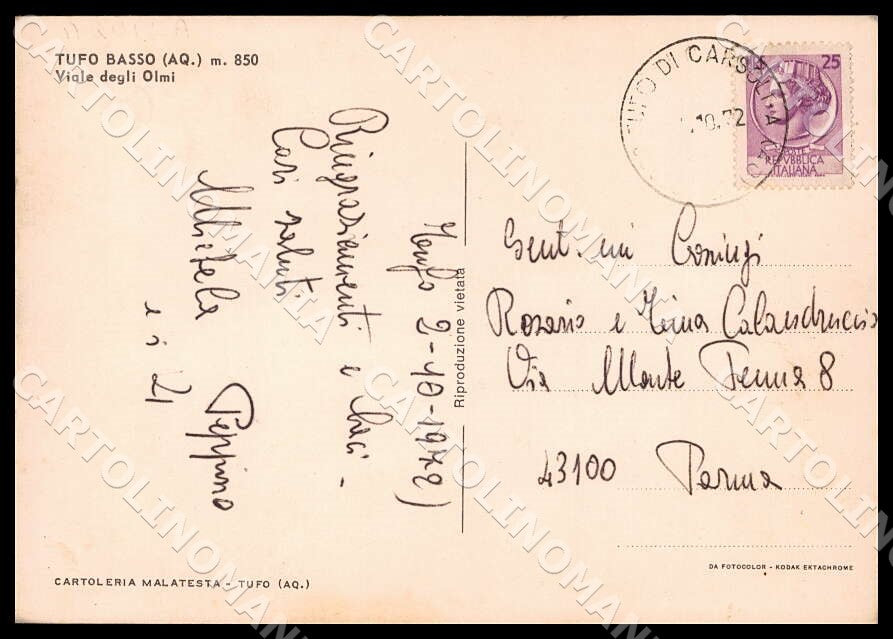 TUFO BASSO (AQ.) m. 850
Viale degli Olmi
TUFO DI CARSOLI
.10.72
25
POSTE
REPVBBLICA
ITALIANA
2-10-1972)
Ringraziamenti e baci -
Cari saluti
Peppino
e i
Riproduzione vietata
Gent. mi Coniugi
Rosario e
Via Monte Penna 8
43100 Parma
CARTOLERIA MALATESTA - TUFO (AQ.)
DA FOTOCOLOR - KODAK EKTACHROME
CARTOLINOMANIA